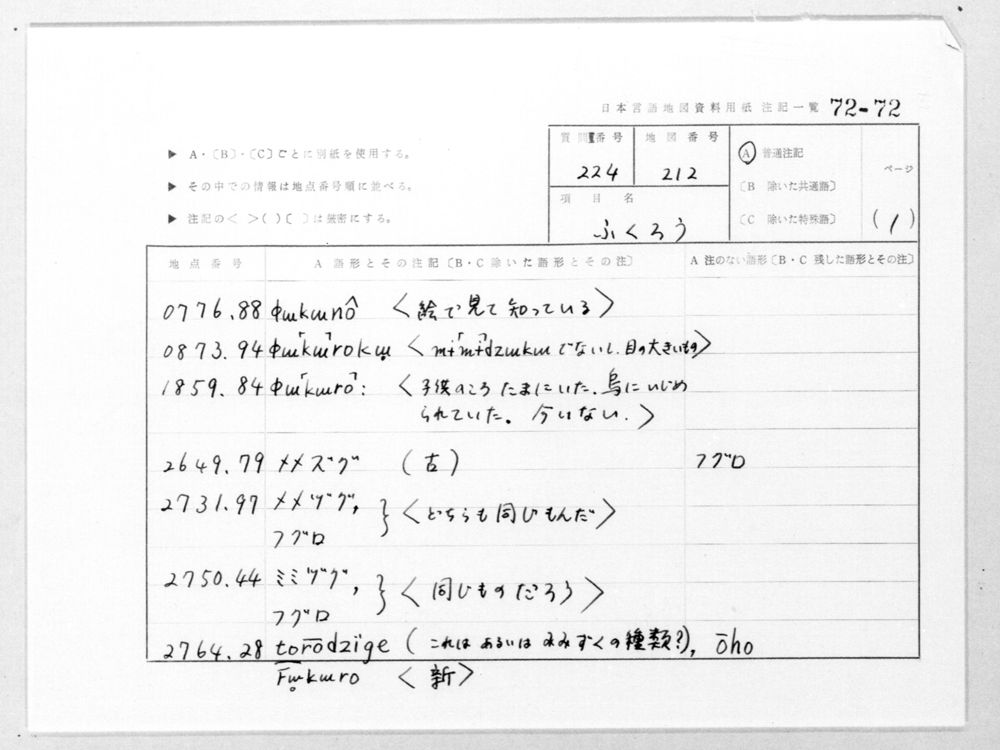 日本言語地図資料用紙 注記一覧 72-72
▶ A・〔B〕・〔C〕ごとに別紙を使用する。
▶ その中での情報は地点番号順に並べる。
▶ 注記の< >( )〔 〕は厳密にする。
質問番号 地図番号
224 212
項目名
ふくろう
A 普通注記
〔B 除いた共通語〕
〔C 除いた特殊語〕
ページ
(1)
地点番号 A 語形とその注記〔B・C 除いた語形とその注〕 A 注のない語形〔B・C 残した語形とその注〕
0776.88 ɸɯkɯnô <絵で見て知っている>
0873.94 ɸɯ̥｢kɯ｣rokɯ̥ <mɨ｢mɨ｣dzɯkɯでないし、目の大きいもの>
1859.84 ɸɯ｢kɯro｣: <子供のころたまにいた。烏にいじめ
られていた。今いない.>
2649.79 メメズグ (古) フグロ
2731.97 メメヅグ, <どちらも同じもんだ>
フグロ
2750.44 ミミヅグ, <同じものだろう>
フグロ
2764.28 torōdzige (これはあるいはみみずくの種類?), ōho
F̅ɯ̥kɯro <新>